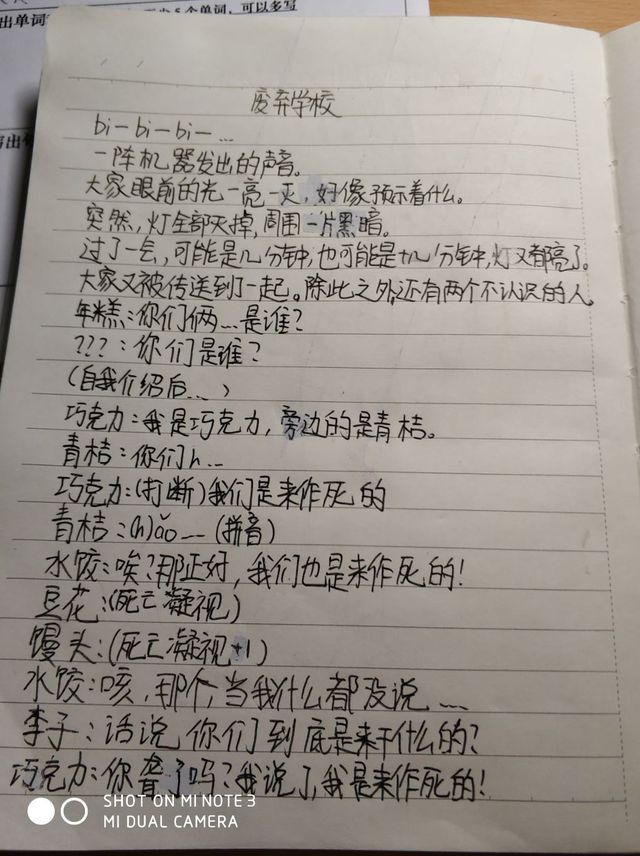 出单词
5个单词，可以多写
废弃学校
bi—bi—bi—…
一阵机器发出的声音。
大家眼前的光一亮一灭，好像预示着什么。
突然，灯全部灭掉，周围一片黑暗。
过了一会，可能是几分钟，也可能是十几分钟，灯又都亮了。
大家又被传送到了一起。除此之外，还有两个不认识的人。
年糕：你们俩…是谁？
？？？：你们是谁？
（自我介绍后…）
巧克力：我是巧克力，旁边的是青桔。
青桔：你们h…
巧克力：（打断）我们是来作死的
青桔：(h)ǎo…（拼音）
水饺：唉？那正好，我们也是来作死的！
豆花：（死亡凝视）
馒头：（死亡凝视+1）
水饺：咳，那个，当我什么都没说…
李子：话说，你们到底是来干什么的？
巧克力：你聋了吗？我说了，我是来作死的！
SHOT ON MI NOTE 3
MI DUAL CAMERA